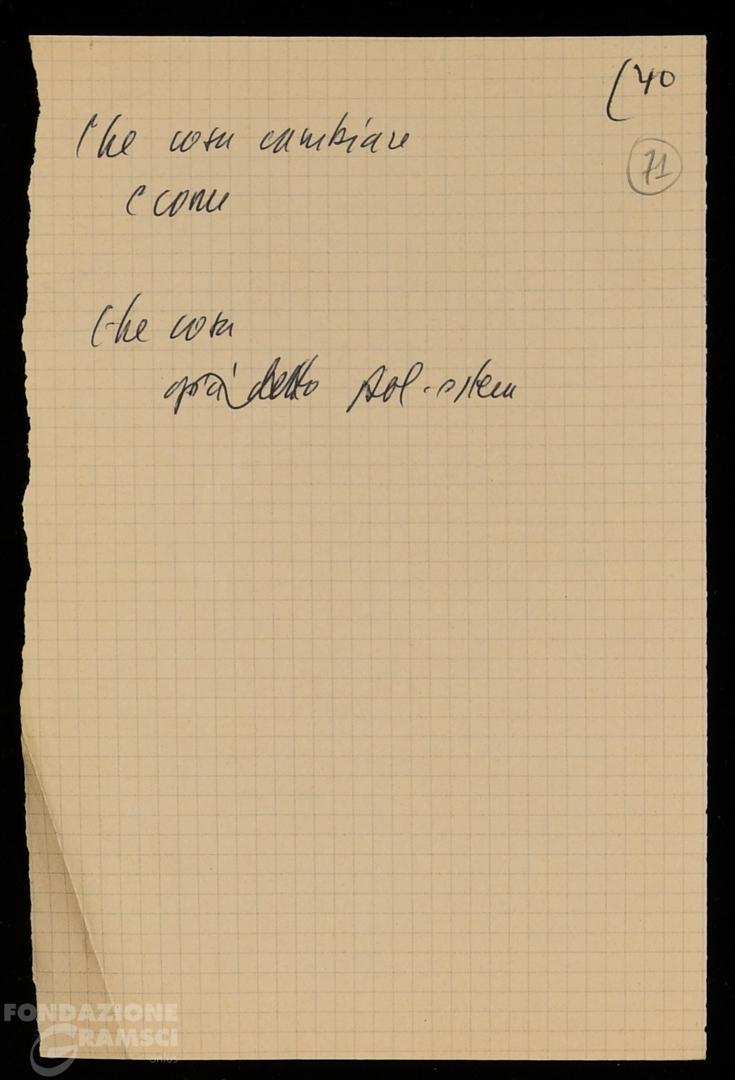 (40
71
Che cosa cambiare
e come
Che cosa
già detto
FONDAZIONE
GRAMSCI
onlus